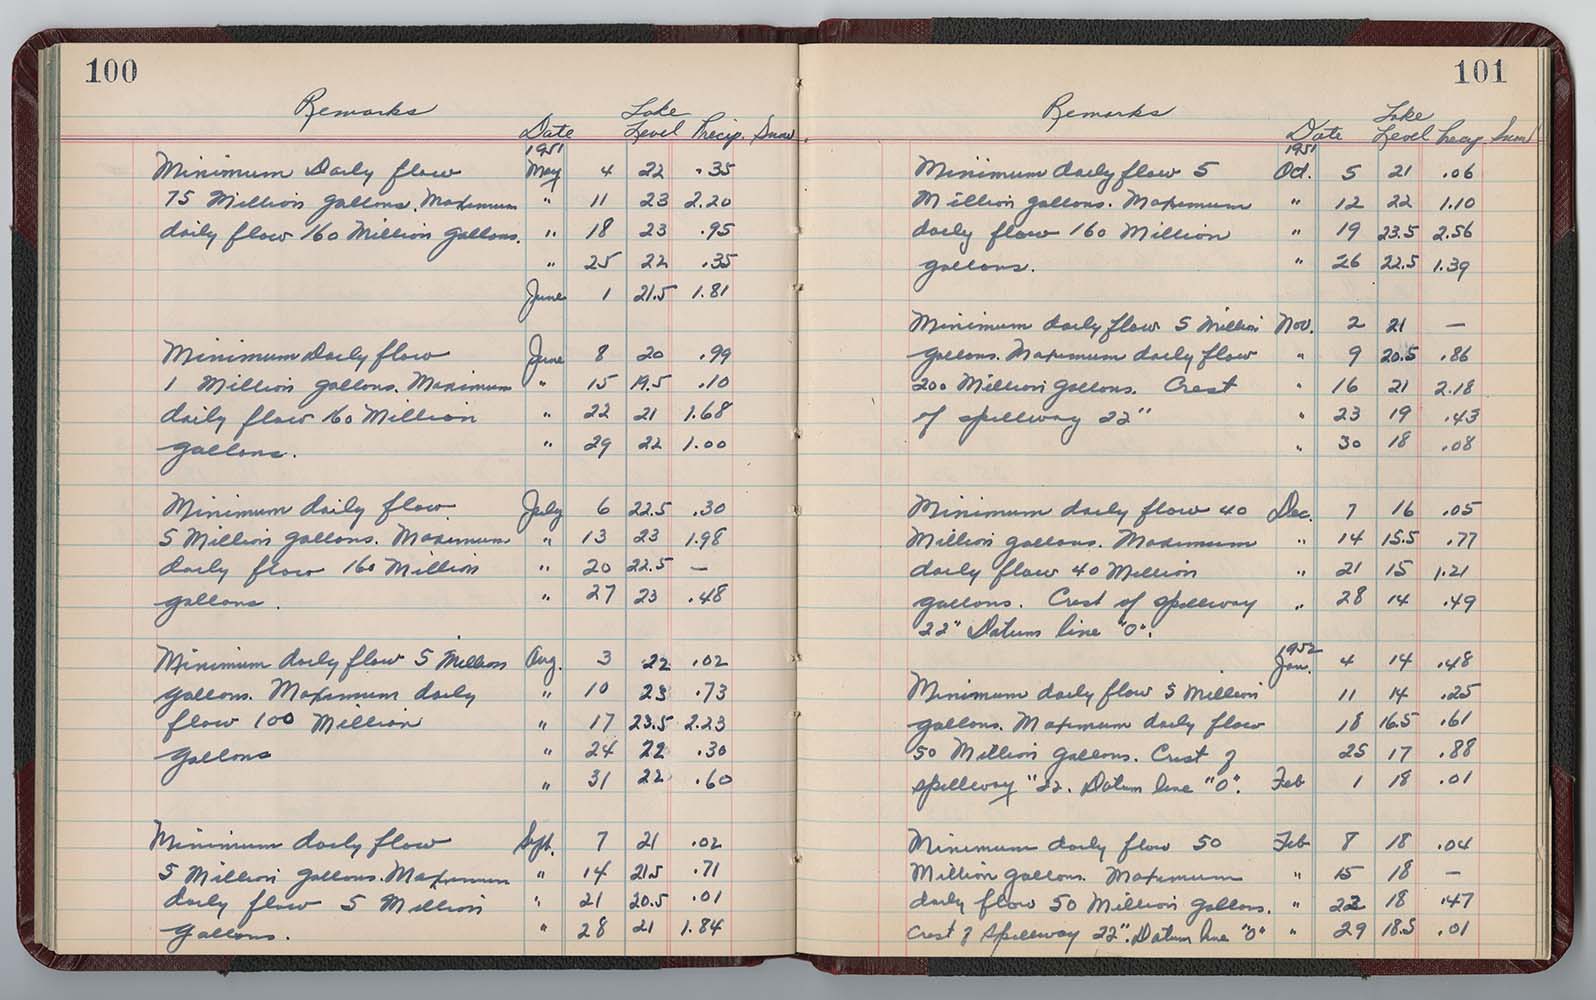 100
Remarks Date Lake Level Precip. Snow.
1951
Minimum Daily flow May 4 22 .35
75 Million gallons. Maximum " 11 23 2.20
daily flow 160 Million gallons. " 18 23 .95
" 25 22 .35
June 1 21.5 1.81
Minimum Daily flow June 8 20 .99
1 Million gallons. Maximum " 15 19.5 .10
daily flow 160 Million " 22 21 1.68
gallons. " 29 22 1.00
Minimum daily flow July 6 22.5 .30
5 Million gallons. Maximum " 13 23 1.98
daily flow 160 Million " 20 22.5 —
gallons. " 27 23 .48
Minimum daily flow 5 Million Aug. 3 22 .02
gallons. Maximum daily " 10 23 .73
flow 100 Million " 17 23.5 2.23
gallons " 24 22 .30
" 31 22 .60
Minimum daily flow Sept. 7 21 .02
5 Million gallons. Maximum " 14 21.5 .71
daily flow 5 Million " 21 20.5 .01
gallons. " 28 21 1.84
101
Remarks Date Lake Level Precip Snow
1951
Minimum daily flow 5 Oct. 5 21 .06
Million gallons. Maximum " 12 22 1.10
daily flow 160 Million " 19 23.5 2.56
gallons. " 26 22.5 1.39
Minimum daily flow 5 Million Nov. 2 21 —
gallons. Maximum daily flow " 9 20.5 .86
200 Million gallons. Crest " 16 21 2.18
of spillway 22" " 23 19 .43
" 30 18 .08
Minimum daily flow 40 Dec. 7 16 .05
Million gallons. Maximum " 14 15.5 .77
daily flow 40 Million " 21 15 1.21
gallons. Crest of spillway " 28 14 .49
22" Datum line "0".
1952
Jan. 4 14 .48
Minimum daily flow 5 Million 11 14 .25
gallons. Maximum daily flow 18 16.5 .61
50 Million gallons. Crest of 25 17 .88
spillway "22. Datum line "0". Feb 1 18 .01
Minimum daily flow 50 Feb 8 18 .04
Million gallons. Maximum " 15 18 —
daily flow 50 Million gallons. " 22 18 .47
Crest of spillway 22". Datum line "0" " 29 18.5 .01